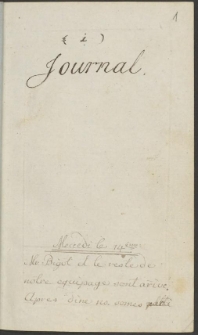 1
( 1 )
Journal.
Mecredi le 19
Mr Bigot et le reste de
notre equipage sont arivé,
Après diné ne nous